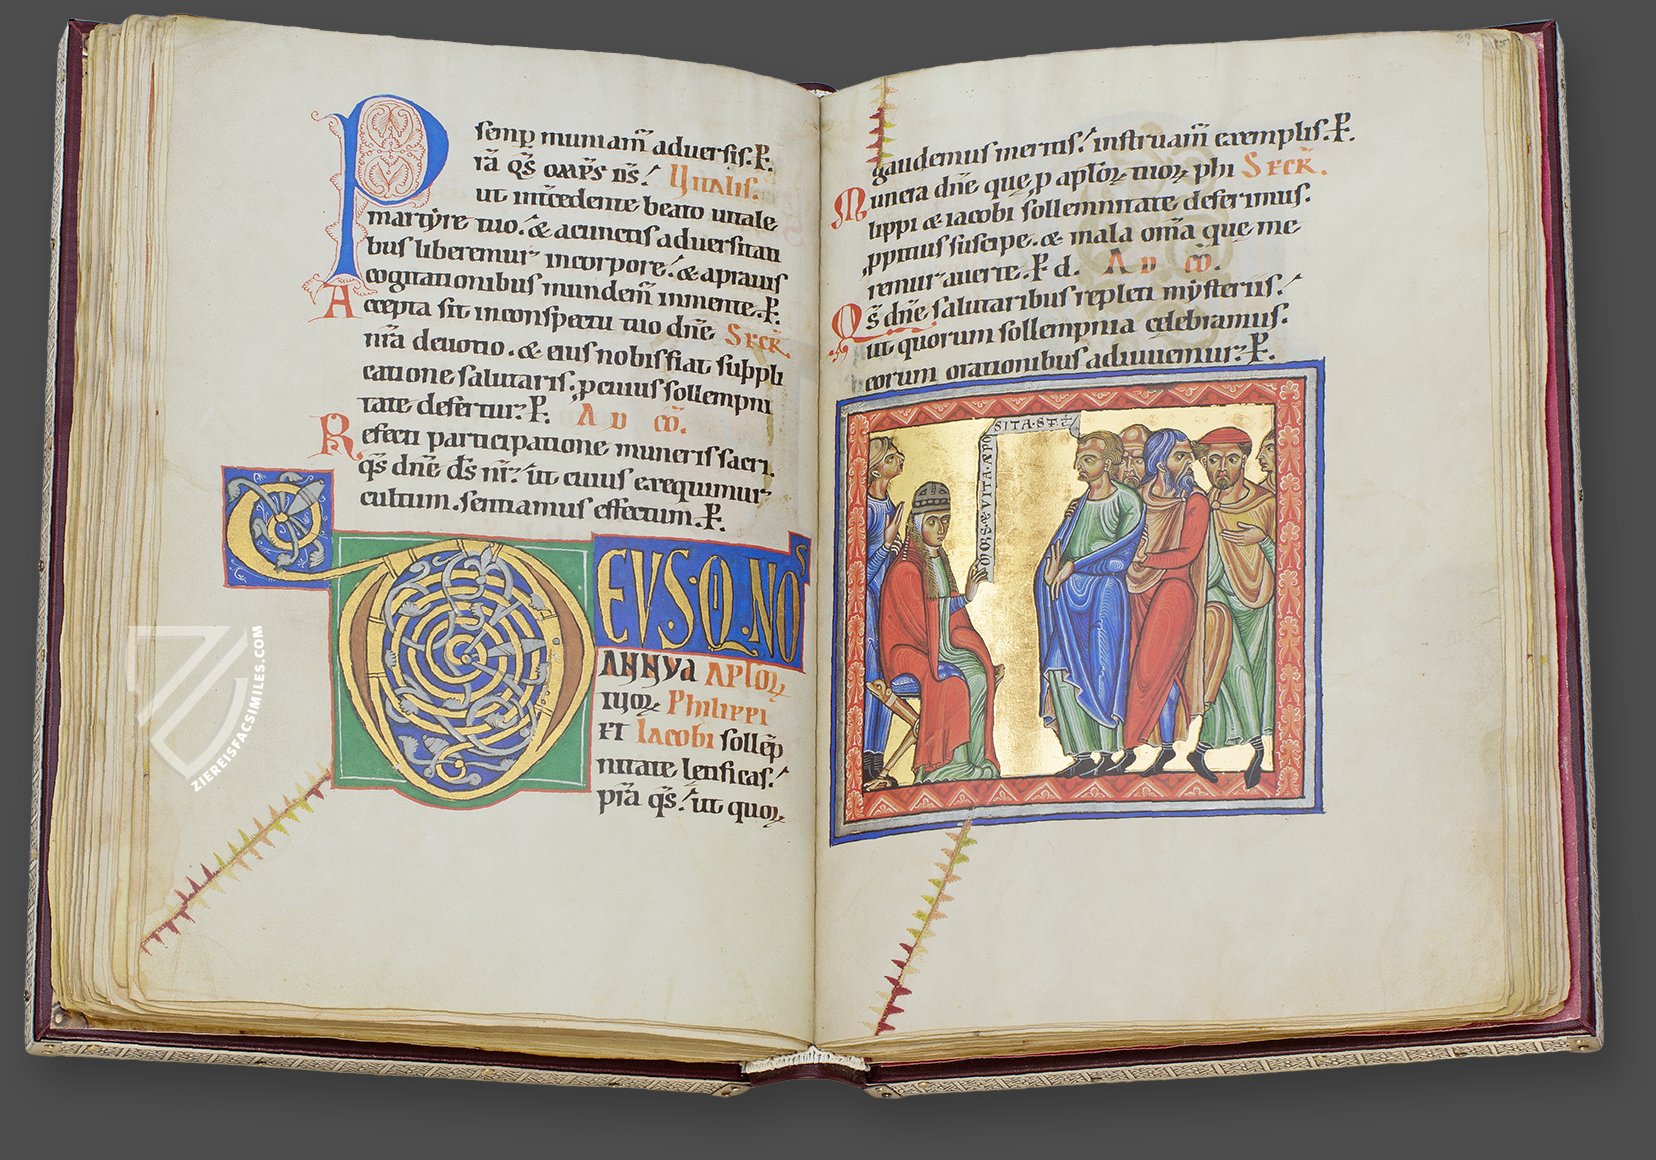 semp muniam̄ adversis. P.
iā q̄s om̄ps d̄s. Vitalis.
ut intcedente beato uitale
martyre tuo. & a cunctis aduersitati
bus liberemur in corpore. & a prauis
cogitationibus mundem̄ in mente. P.
Accepta sit in conspectu tuo dn̄e SECR̄.
nr̄a deuotio. & eius nobis fiat suppli
catione salutaris, p cuius sollempni
tate defertur. P. AD CŌ.
Refecti participatione muneris sacri.
q̄s dn̄e d̄s nr̄. ut cuius exequimur
cultum. sentiamus effectum. P.
DEVS. Q. NOS
ANNVA APLOꝜ
TUOꝜ PHILIPPI
ET IACOBI sollēp
nitate letificas.
pr̄a q̄s. ut quoꝝ
29
gaudemus meritis. instruam̄ exemplis. P.
Munera dn̄e que p aploꝝ tuoꝝ phi SECR̄.
lippi & iacobi sollemnitate deferimus.
ppitius suscipe. & mala om̄a que me
remur auerte. P d. AD CŌ.
Q̄s dn̄e salutaribus repleti mysteriis.
ut quorum sollempnia celebramus.
eorum orationibus adiuuemur. P.
MORS & VITA. APPO
SITA. S̄T.
ZIEREISFACSIMILES.COM